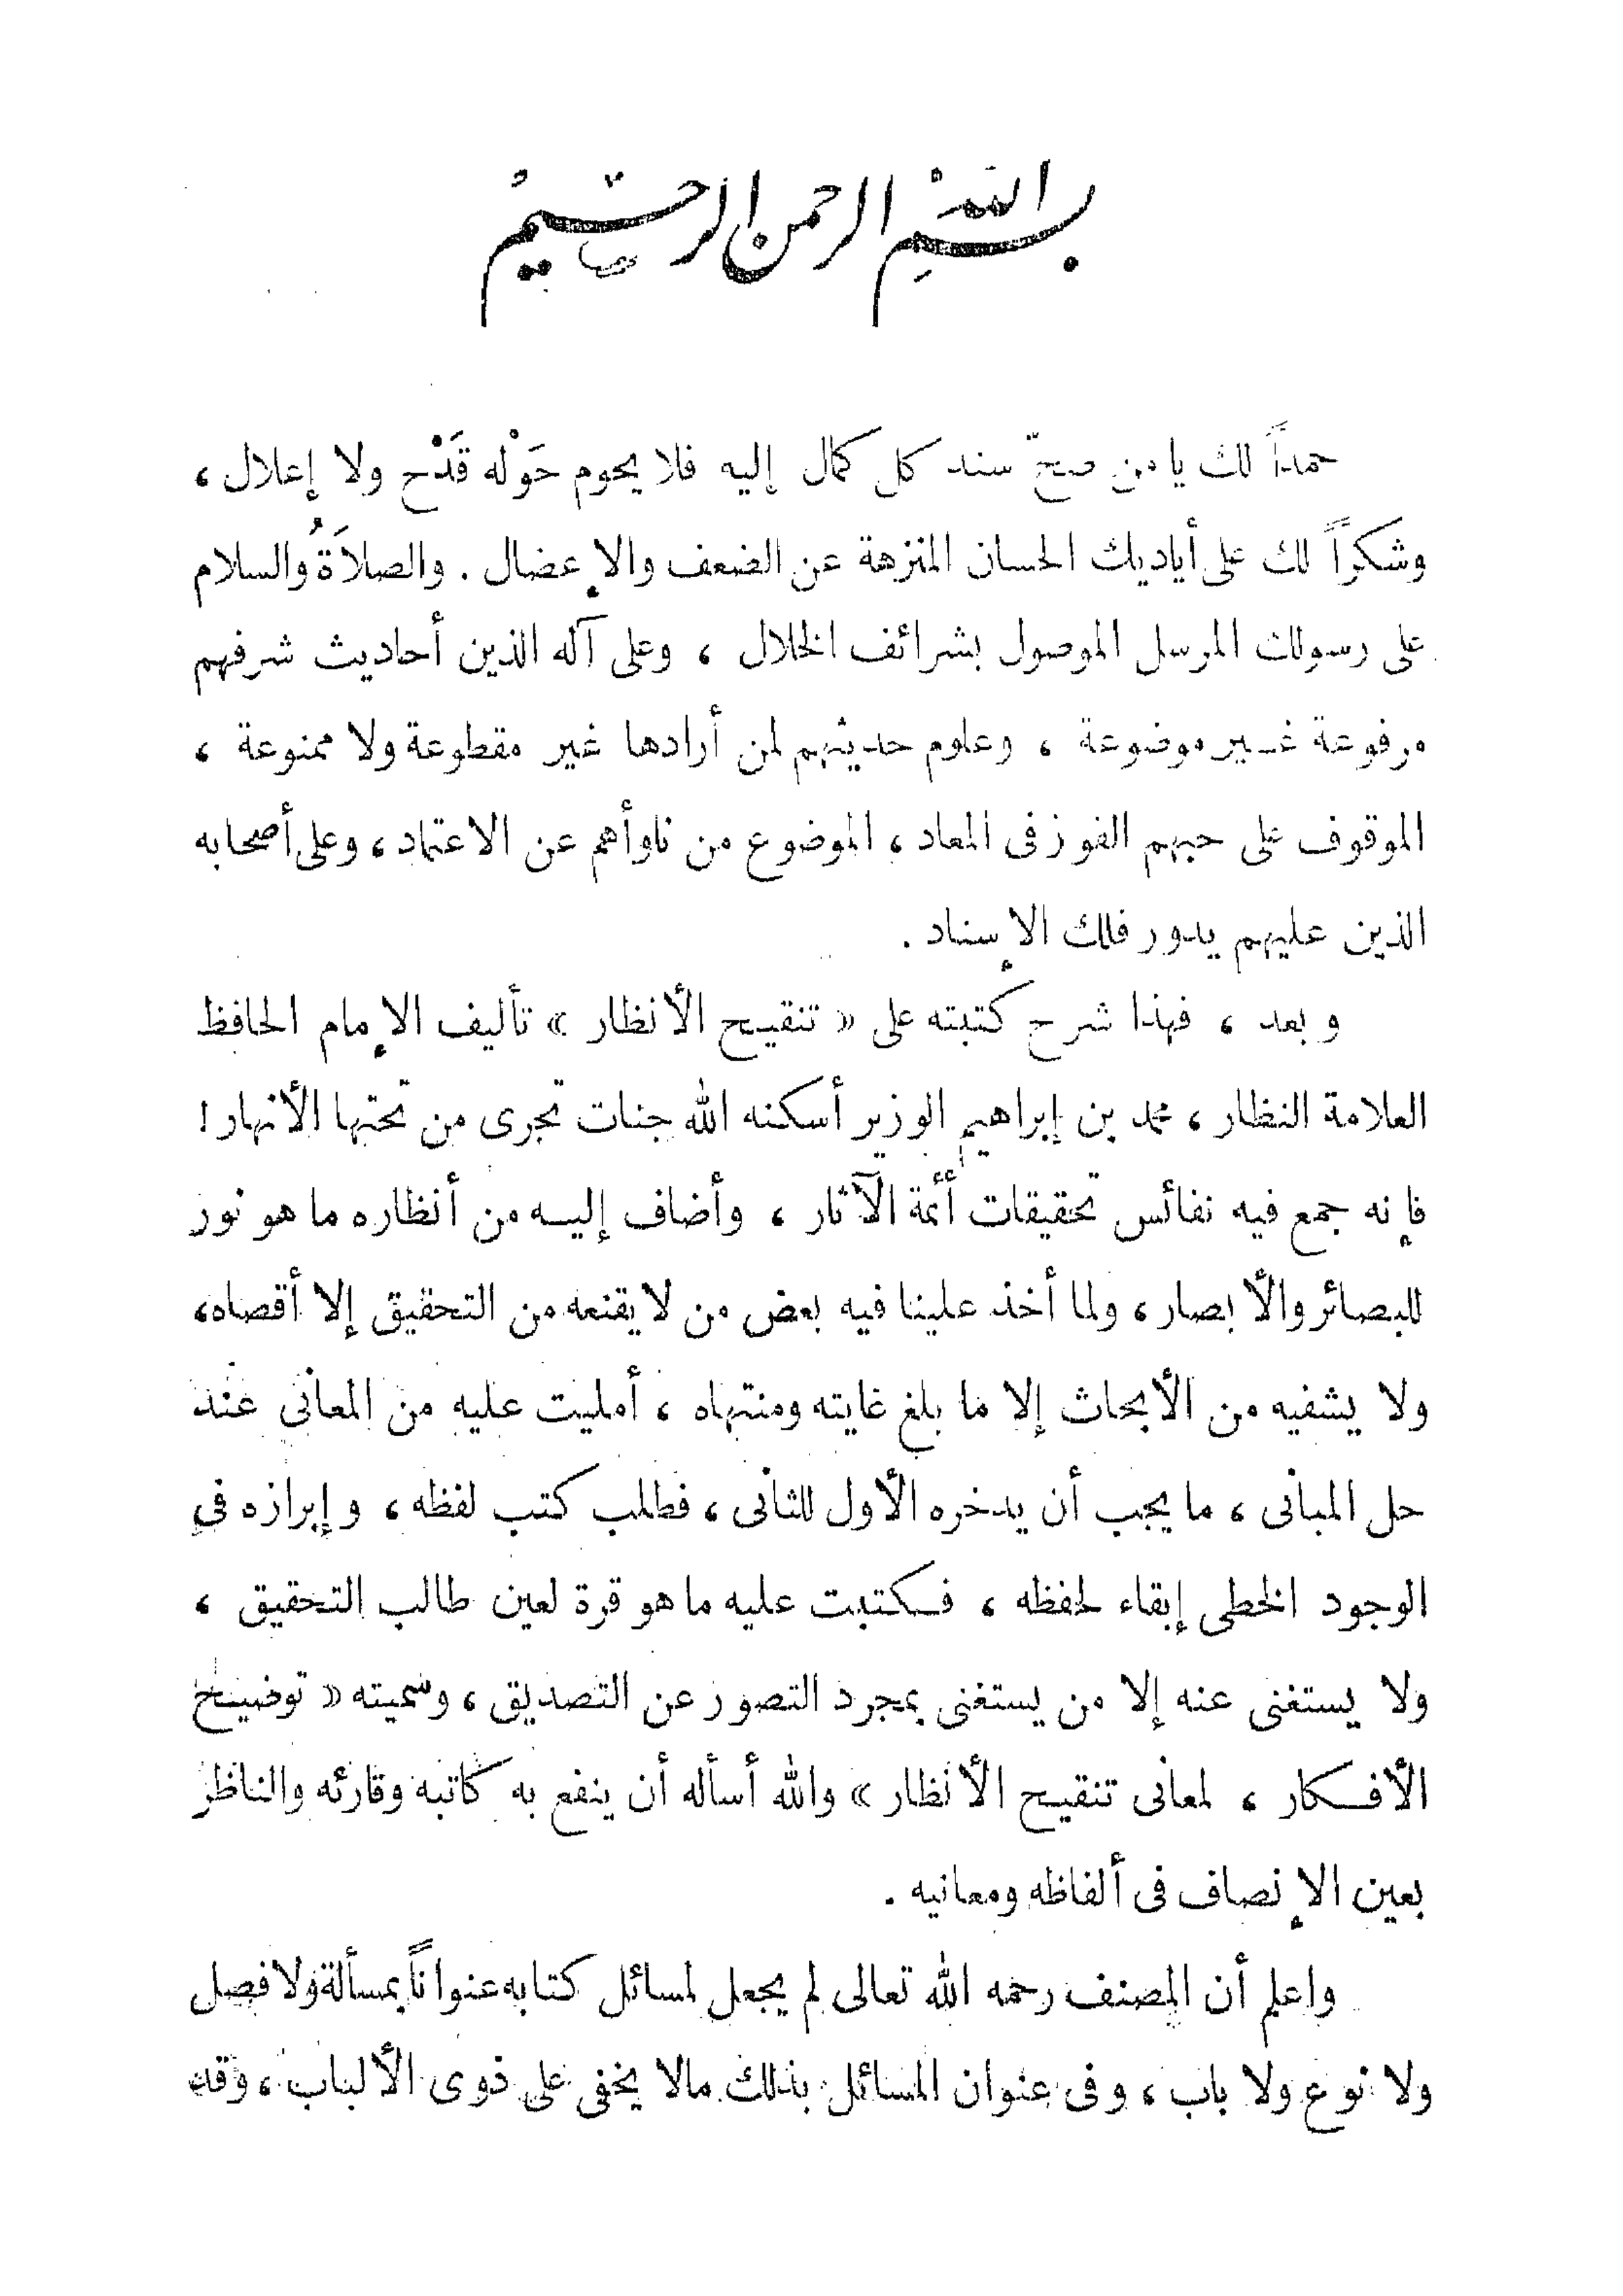 بسم الله الرحمن الرحيم
حمداً لك يا من صحّ سند كل كمال إليه فلا يحوم حَوْله قَدْح ولا إعلال ،
وشكراً لك على أياديك الحسان المنزهة عن الضعف والإعضال . والصلاَةُ والسلام
على رسولك المرسل الموصول بشرائف الخلال ، وعلى آله الذين أحاديث شرفهم
مرفوعة غير موضوعة ، وعلوم حديثهم لمن أرادها غير مقطوعة ولا ممنوعة ،
الموقوف على حبهم الفوز فى المعاد ، الموضوع من ناوأهم عن الاعتماد ، وعلى أصحابه
الذين عليهم يدور فلك الإسناد .
وبعد ، فهذا شرح كتبته على « تنقيح الأنظار » تأليف الإمام الحافظ
العلامة النظار ، محمد بن إبراهيم الوزير أسكنه الله جنات تجرى من تحتها الأنهار !
فإنه جمع فيه نفائس تحقيقات أئمة الآثار ، وأضاف إليه من أنظاره ما هو نور
للبصائر والأبصار ، ولما أخذ علينا فيه بعض من لا يقنعه من التحقيق إلا أقصاه ،
ولا يشفيه من الأبحاث إلا ما بلغ غايته ومنتهاه ، أمليت عليه من المعانى عند
حل المبانى ، ما يجب أن يدخره الأول للثانى ، فطلب كتب لفظه ، وإبرازه فى
الوجود الخطى إبقاء لحفظه ، فكتبت عليه ما هو قرة لعين طالب التحقيق ،
ولا يستغنى عنه إلا من يستغنى بمجرد التصور عن التصديق ، وسميته « توضيح
الأفكار ، لمعانى تنقيح الأنظار » والله أسأله أن ينفع به كاتبه وقارئه والناظر
بعين الإنصاف فى ألفاظه ومعانيه .
واعلم أن المصنف رحمه الله تعالى لم يجعل لمسائل كتابه عنواناً بمسألة ولا فصل
ولا نوع ولا باب ، وفى عنوان المسائل بذلك مالا يخفى على ذوى الألباب ، وقد